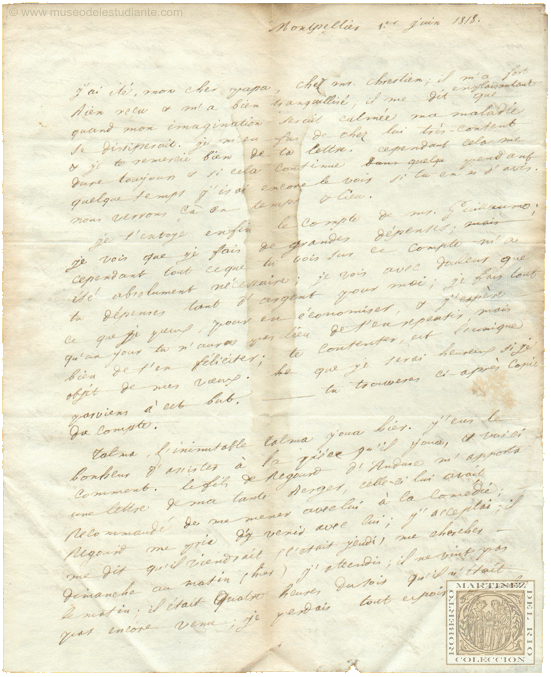 © www.museodelestudiante.com
Montpellier 1er juin 1818.
J'ai été, mon cher papa, chez mr chrestien; il m'a fort
bien reçu & m'a bien tranquillisé, il me dit que
quand mon imagination serait calmée ma maladie
se dissiperait. je m'en fus de chez lui très content
& je te remercie bien de ta lettre. cependant cela me
dure toujours & si cela continue dans quelque pendant
quelque temps j'irai encore le voir si tu en es d'avis.
nous verrons ça en temps & lieu.
je t'envoye enfin le compte de mr.
je vois que je fais de grandes dépenses; mais
cependant tout ce que tu vois sur ce compte m'a
été absolument nécessaire; je vois avec douleur que
tu dépenses tant d'argent pour moi; je fais tout
ce que je peux, pour en économiser, & j'espère
qu'un jour tu n'auras pas lieu de t'en repentir, mais
bien de t'en féliciter; te contenter, est l'unique
objet de mes vœux. he que je serai heureux si je
parviens à cet but. tu trouveras ci-après copie
du compte.
Talma, l'inimitable talma joua hier. j'eus le
bonheur d'assister à la pièce qu'il joua, & voici
comment. le fils de Regourd d'Anduze m'apporta
une lettre de ma tante Berger, celle-ci lui avait
recommandé de me mener avec lui à la comédie.
Regourd me pria d'y venir avec lui; j'acceptai; il
me dit qu'il viendrait (c'était jeudi) me chercher
demanche au matin (hier) j'attendis; il ne vint pas
le matin. il était quatre heures du soir qu'il n'était
pas encore venu; je perdais tout espoir
ROBERTO MARTINEZ DEL RIO
COLECCION